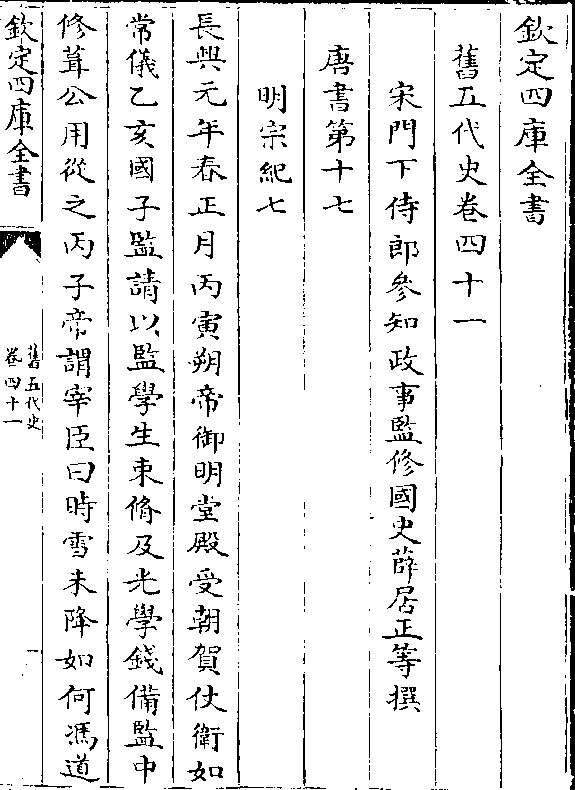 欽定四庫全書
舊五代史卷四十一
宋門下侍郎參知政事監修國史薛居正等撰
唐書第十七
明宗紀七
長興元年春正月丙寅朔帝御明堂殿受朝賀仗衛如
常儀乙亥國子監請以監學生束脩及光學錢備監中
修葺公用從之丙子帝謂宰臣曰時雪未降如何馮道
欽定四庫全書
舊五代史
卷四十一
一